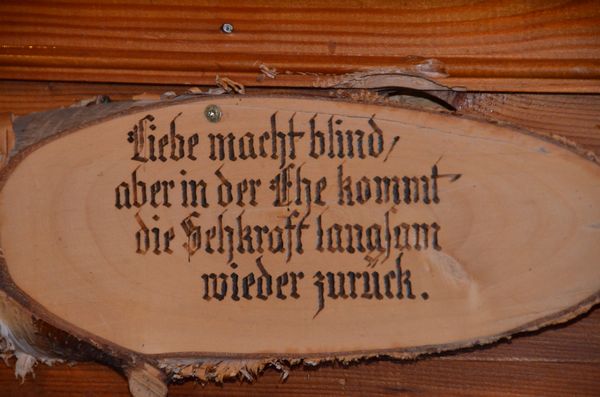 Liebe macht blind,
aber in der Ehe kommt
die Sehkraft langsam
wieder zurück.